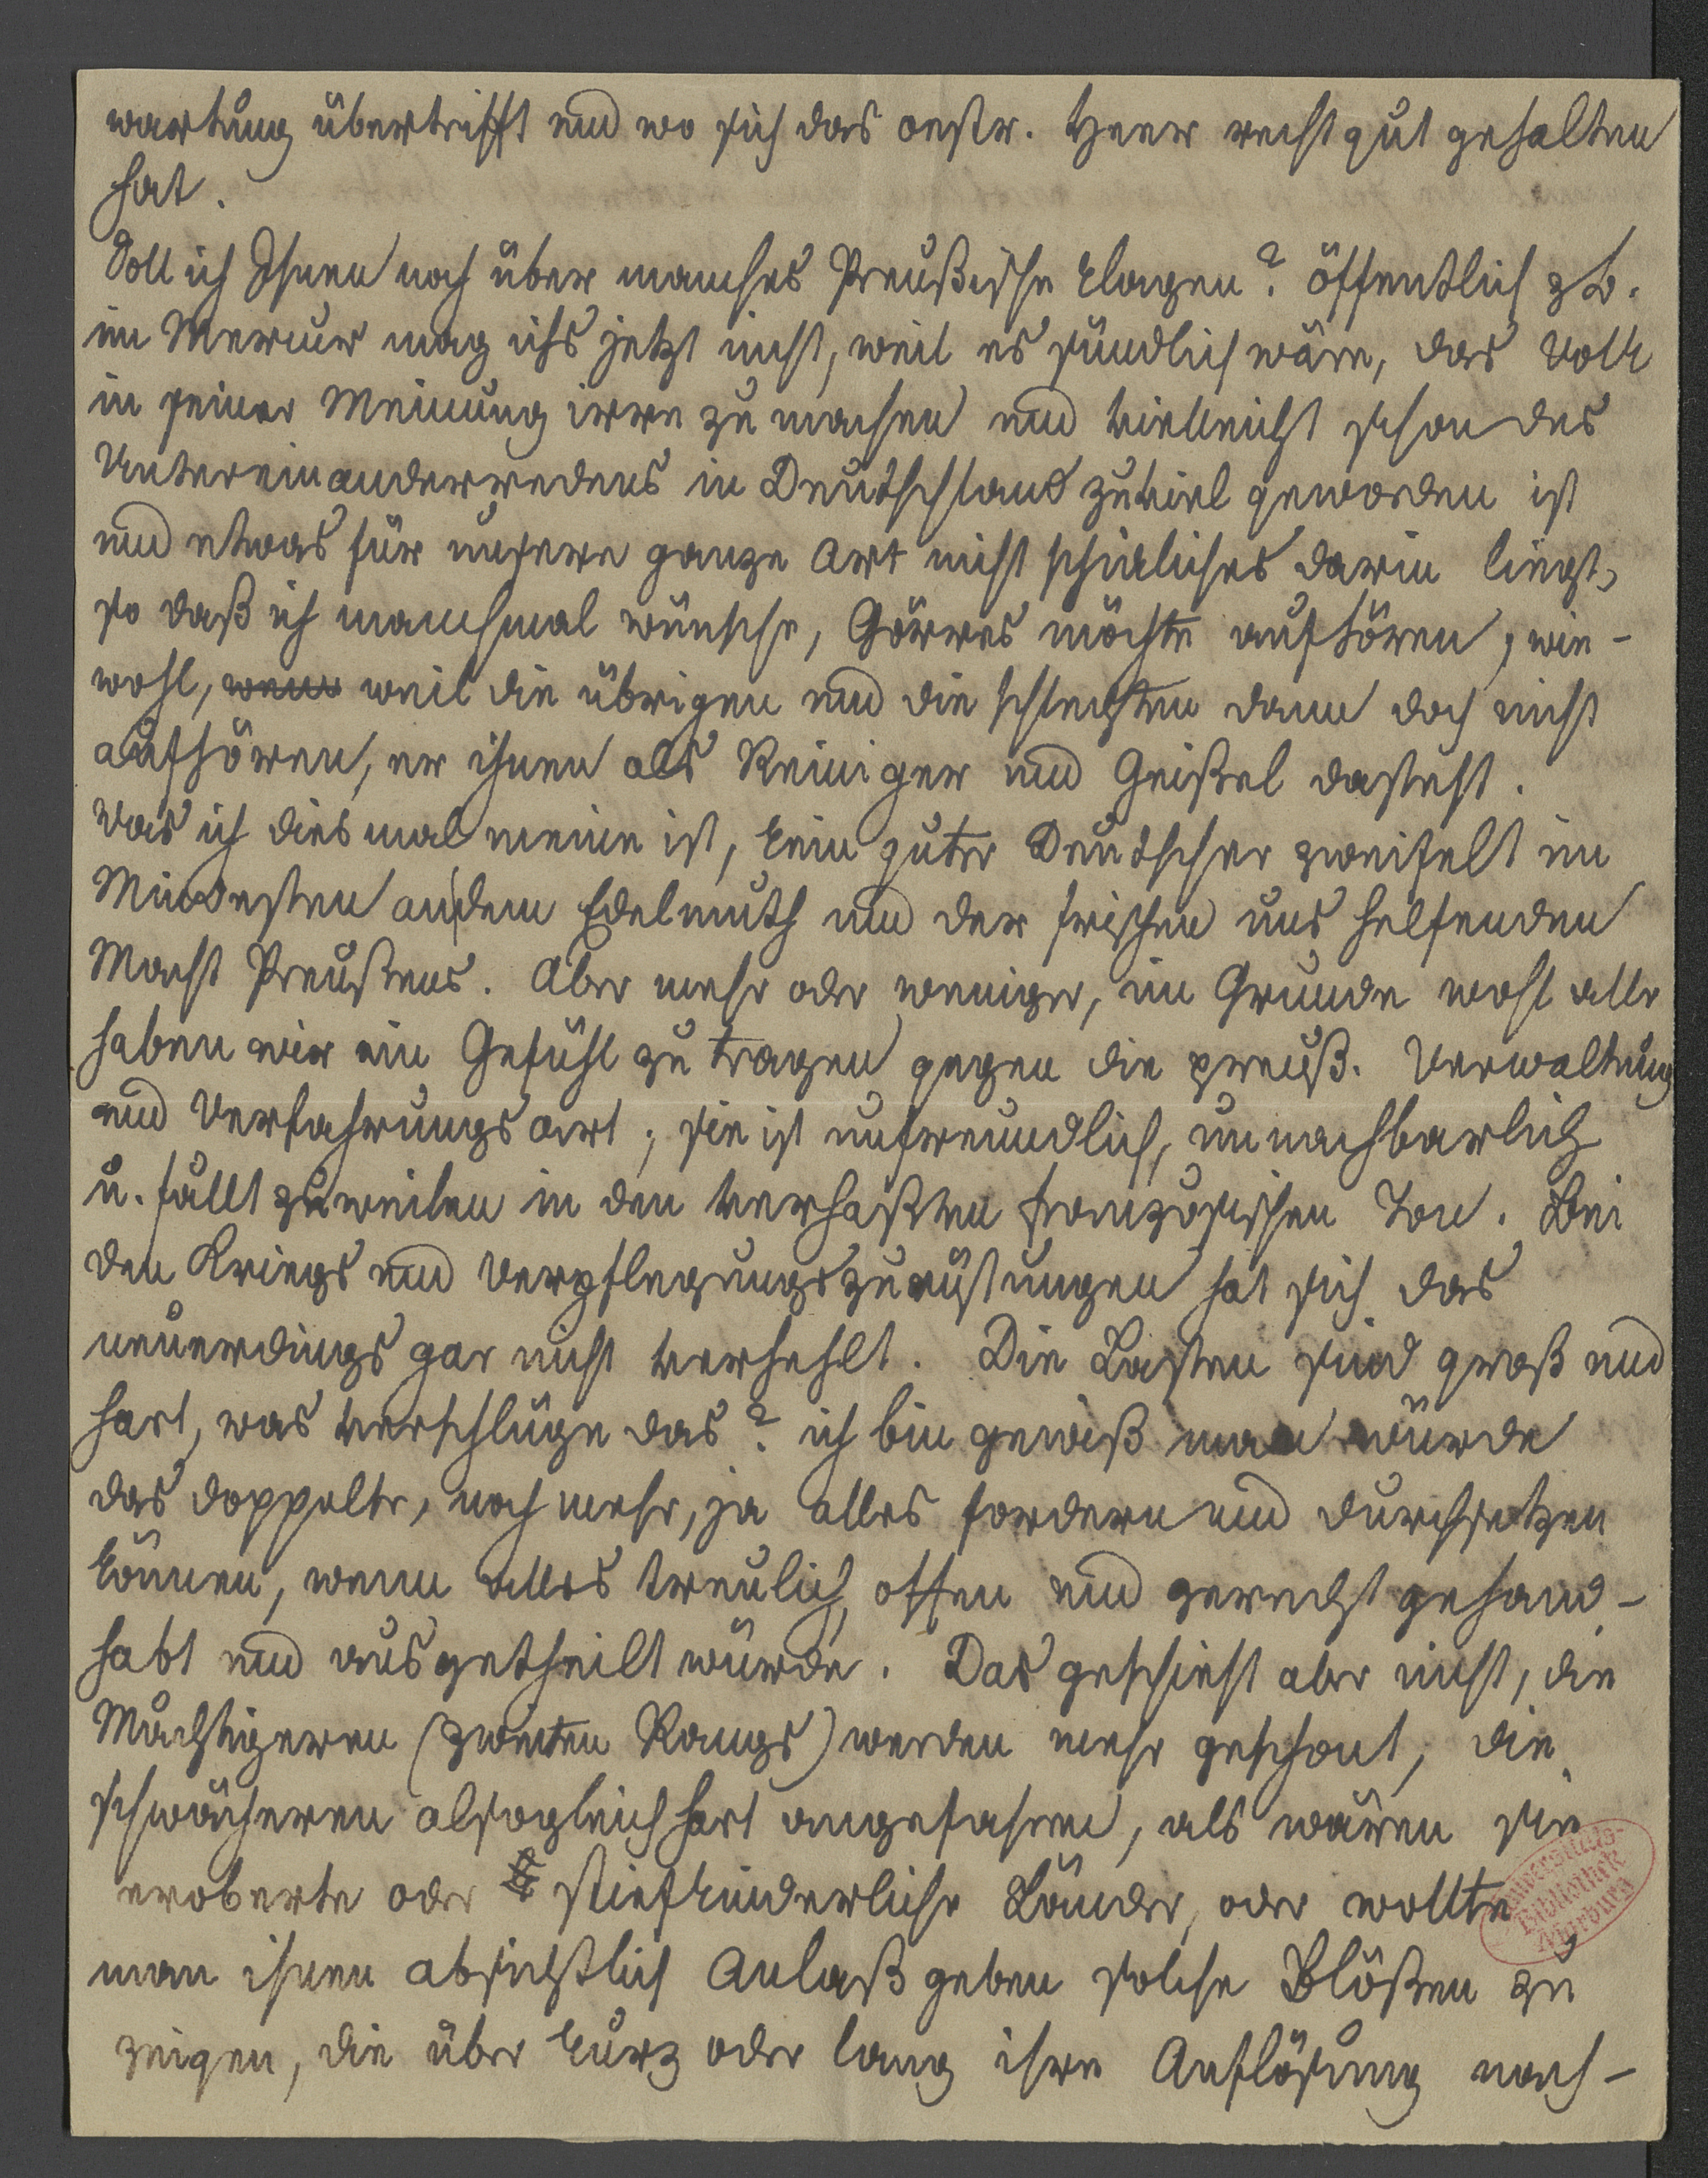 wartung übertrifft und wo sich das oestr. Heer recht gut gehalten
hat.
Soll ich Ihnen noch über manches Preußische klagen? öffentlich z b.
im Mercur mag ichs jetzt nicht, weil es sündlich wäre, das Volk
in seiner Meinung irre zu machen und vielleicht schon des
Untereinanderredens in Deutschland zuviel geworden ist
und etwas für unsere ganze Art nicht schickliches darin liegt,
so daß ich manchmal wünsche, Görres möchte aufhören, wie-
wohl, wenn weil die übrigen und die schlechten dann doch nicht
aufhören, er ihnen als Reiniger und Geißel dasteht.
Was ich diesmal meine ist, kein guter Deutscher zweifelt im
Mindesten an dem Edelmuth und der frischen uns helfenden
Macht Preußens. Aber mehr oder weniger, im Grunde wohl alle
haben wir ein Gefühl zu tragen gegen die preuß. Verwaltung
und Verfahrungsart, sie ist unfreundlich, unnachbarlich
u. fällt zuweilen in den verhaßten französischen Ton. Bei
den Kriegs und Verpflegungszurüstungen hat sich das
neuerdings gar nicht verhehlt. Die Lasten sind groß und
hart, was verschlüge das? ich bin gewiß man würde
das doppelte, noch mehr, ja alles fordern und durchsetzen
können, wenn alles treulich, offen und gerecht gehand-
habt und ausgetheilt würde. Das geschieht aber nicht, die
Mächtigeren (zweiten Rangs) werden mehr geschont, die
schwächeren alsogleich hart angefahren, als wären sie
eroberte oder stiefkinderliche Länder, oder wollte
man ihnen absichtlich Anlaß geben solche Blößen zu
zeigen, die über kurz oder lang ihre Auflösung nach-
Universitäts-
Bibliothek
Marburg